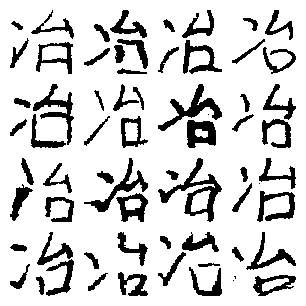 冶冶冶冶
冶冶冶冶
冶冶冶冶
冶冶冶冶